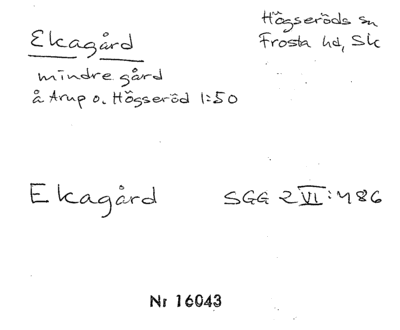 Ekagård
Högseröds sn
Frosta hd, Sk
mindre gård
å Arup o. Högseröd 1:50
Ekagård
SGG 2 VI: 486
Nr 16043